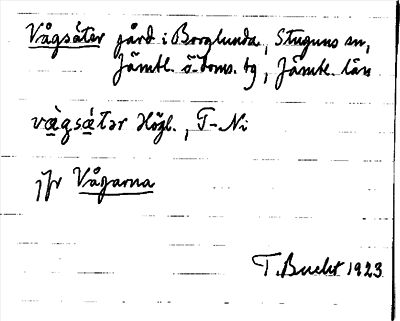 Vågsäter gård i Borglunda, Stuguns sn,
Jämtl. ö. doms. tg, Jämtl. län
vàgsátər Högl., T-Ni
jfr Vågarna
T. Bucht 1923